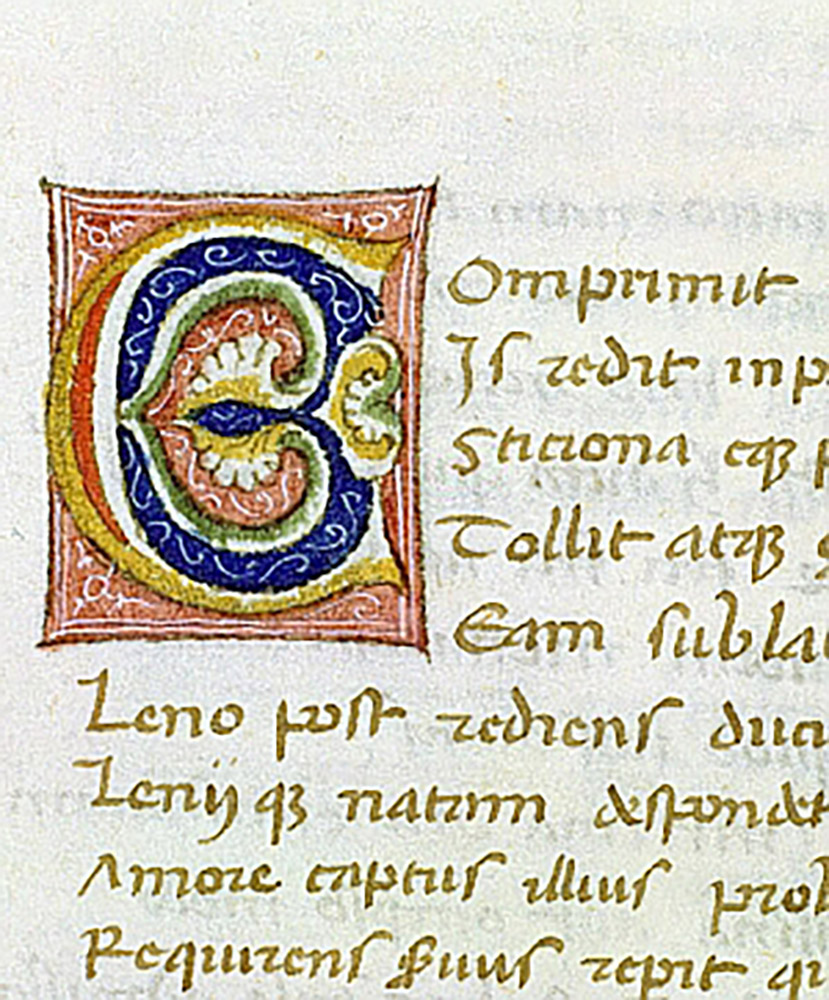 Comprimit
Is redit in p
Sticiona eqȝ p
Tollit atqȝ
Eam subla
Leno post rediens duci
Lenij qȝ natam despondet
Amore captus illius pro
Requirens seruus repit qu